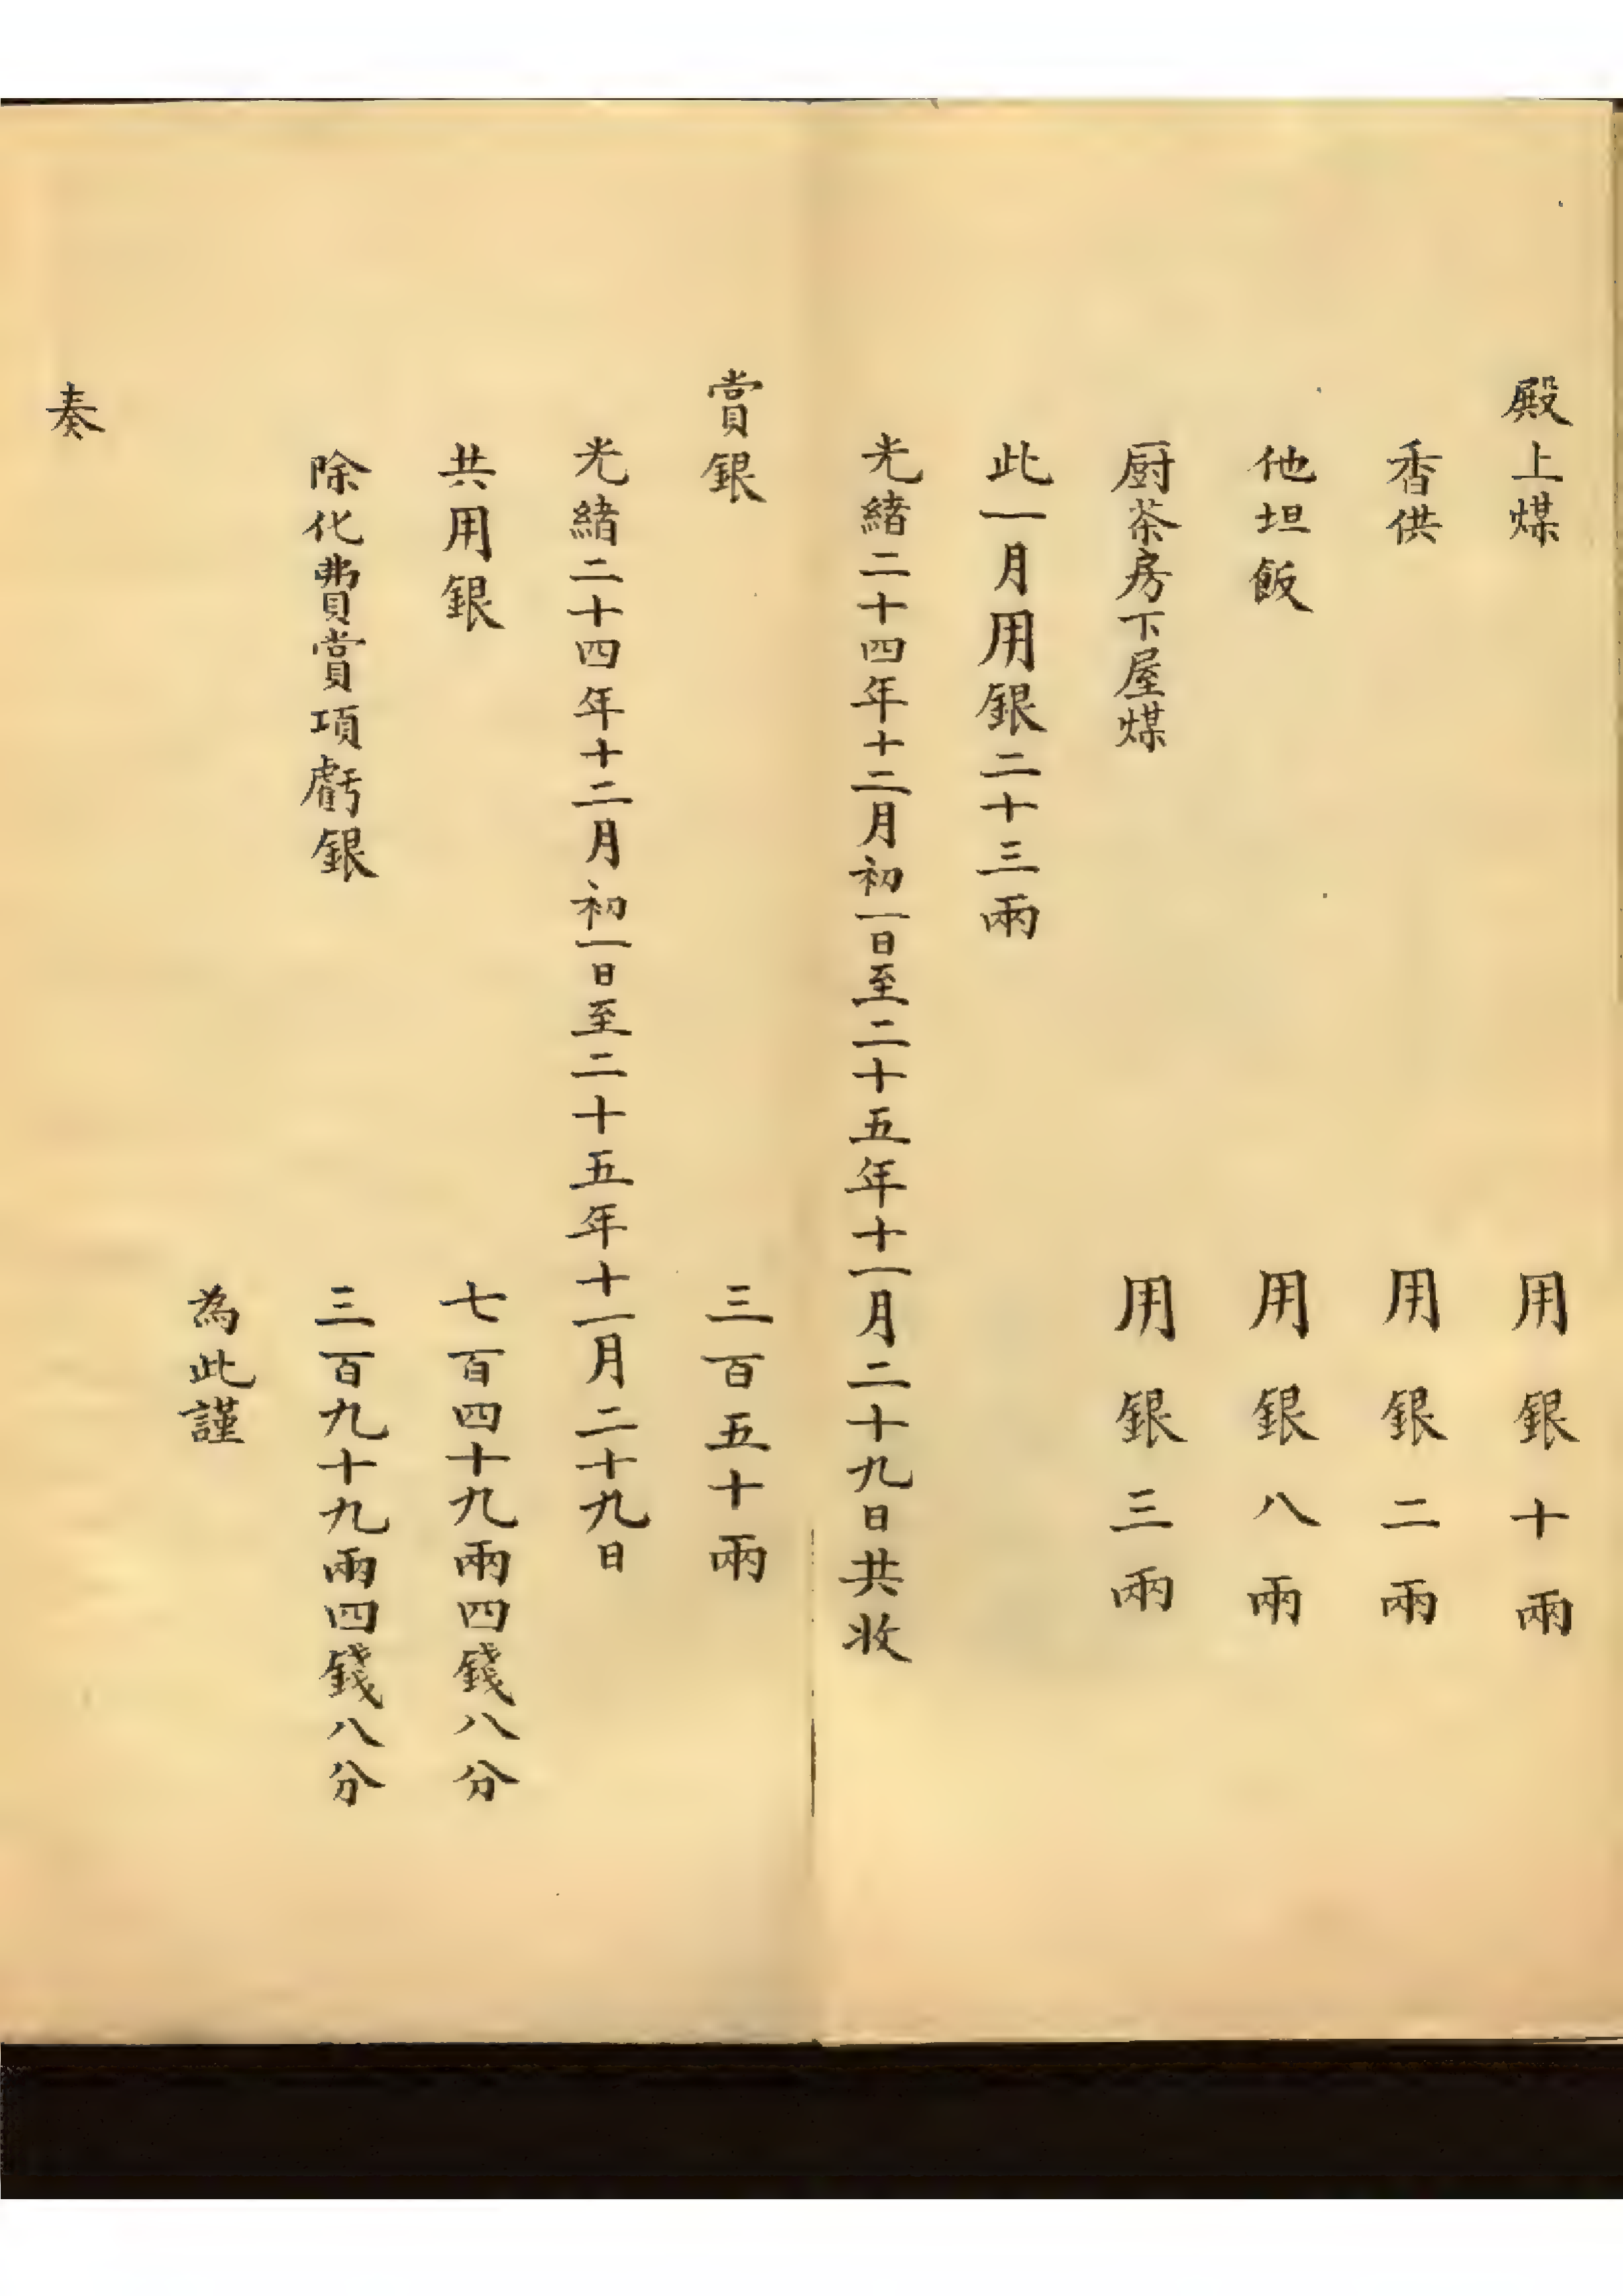 殿上煤 用銀十兩
香供 用銀二兩
他坦飯 用銀八兩
厨茶房下屋煤 用銀三兩
此一月用銀二十三兩
光緒二十四年十二月初一日至二十五年十一月二十九日共收
賞銀 三百五十兩
光緒二十四年十二月初一日至二十五年十一月二十九日
共用銀 七百四十九兩四錢八分
除化費賞項虧銀 三百九十九兩四錢八分
為此謹
奏